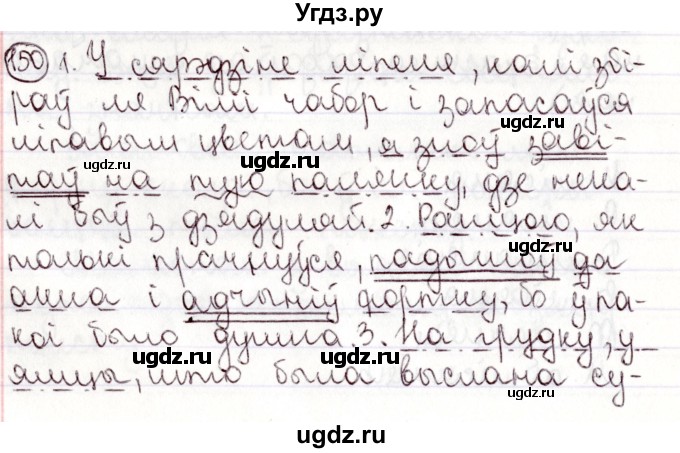 Угдз.ру
150 1. У сярэдзіне ліпеня, калі збі-
раў ля Віліі чабор і запасаўся
ліпавым цветам, я зноў заві-
таў на тую палянку, дзе нека-
лі быў з дзядулем. 2. Раніцою, як
толькі прачнуўся, падышоў да
акна і адчыніў фортку, бо ў па-
коі было душна. 3. На грудку, у
ямцы, што была выслана су-
ugdz.ru
ugdz.ru
ugdz.ru
ugdz.ru
ugdz.ru
ugdz.ru
ugdz.ru
ugdz.ru
ugdz.ru
ugdz.ru